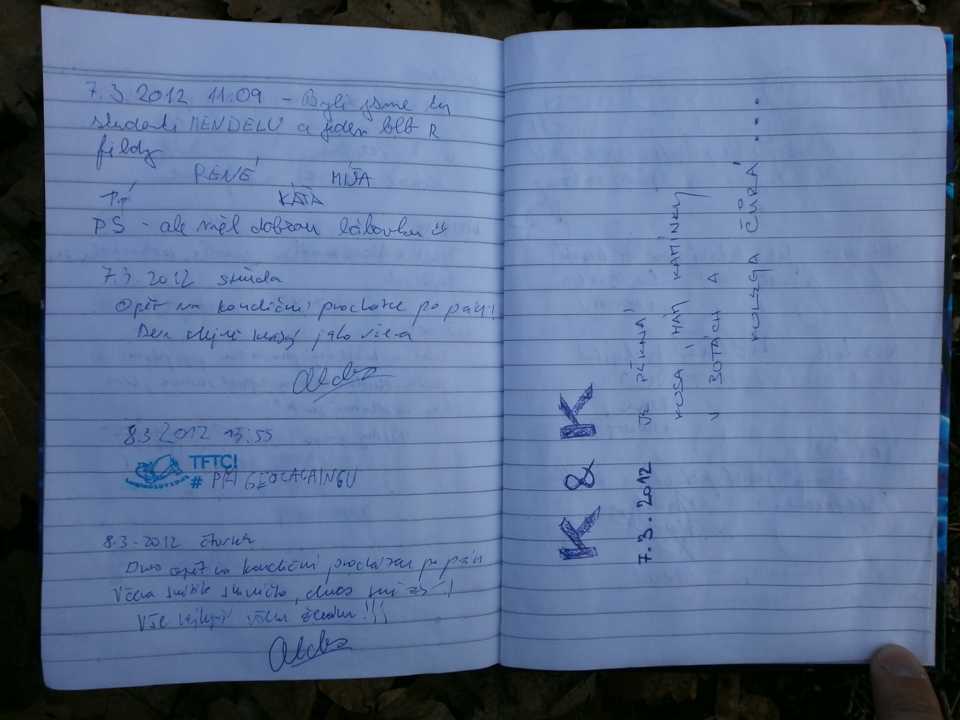 7.3.2012 11:09 - Byli jsme tu
studenti MENDELU a jeden blb R
fildy
RENÉ MÍŠA
KÁŤA
PS - ale měl dobrou bábovku
7.3.2012 středa
Opět na kondiční procházce po práci!
Den
8.3.2012 13:55
TFTC!
# PŘI GEOCACHINGU
8.3.2012 čtvrtek
Dnes opět na kondiční procházce po práci
Včera svítilo sluníčko, dnes
Vše nejlepší všem ženám!!!
K & K
7.3.2012 JE PĚKNÁ
KOSA, MÁM KAMÍNKY
V BOTÁCH A
KOLEGA ČŮRÁ ...